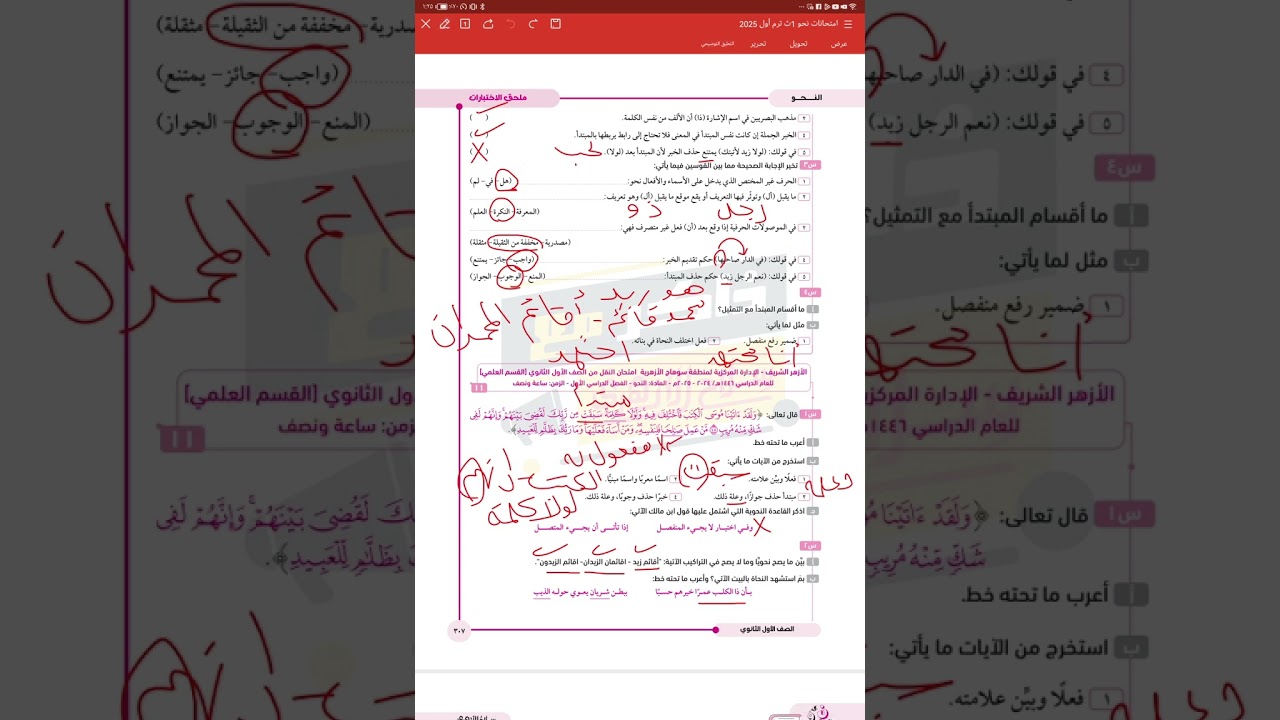 ١:٢٥
٪٧٠
امتحانات نحو 1ث ترم أول 2025
عرض
تحويل
تحرير
النـــحـــو
ملحق الاختبارات
٣ مذهب البصريين في اسم الإشارة (ذا) أن الألف من نفس الكلمة. ( )
٤ الخبر الجملة إن كانت نفس المبتدأ في المعنى فلا تحتاج إلى رابط يربطها بالمبتدأ. ( )
٥ في قولك: (لولا زيد لأتيتك) يمتنع حذف الخبر لأن المبتدأ بعد (لولا). ( )
س٣ تخير الإجابة الصحيحة مما بين القوسين فيما يأتي:
١ الحرف غير المختص الذي يدخل على الأسماء والأفعال نحو: (هل - في - لم)
٢ ما يقبل (أل) وتؤثر فيها التعريف أو يقع موقع ما يقبل (أل) وهو تعريف:
(المعرفة - النكرة - العلم)
رجل ذو
٣ في الموصولات الحرفية إذا وقع بعد (أن) فعل غير متصرف فهي:
(مصدرية - مخففة من الثقيلة - مثقلة)
٤ في قولك: (في الدار صاحبها) حكم تقديم الخبر: (واجب - جائز - يمتنع)
٥ في قولك: (نعم الرجل زيد) حكم حذف المبتدأ: (المنع - الوجوب - الجواز)
هو زيد
س٤
أ ما أقسام المبتدأ مع التمثيل؟
محمد قائم - أقائم المحمدان
ب مثل لما يأتي:
١ ضمير رفع منفصل. ٢ فعل اختلف النحاة في بنائه.
أنا مجتهد اجتهد
الأزهر الشريف - الإدارة المركزية لمنطقة سوهاج الأزهرية امتحان النقل من الصف الأول الثانوي [القسم العلمي]
للعام الدراسي ١٤٤٦هـ/ ٢٠٢٤ - ٢٠٢٥م - المادة: النحو - الفصل الدراسي الأول - الزمن: ساعة ونصف
١١
مبتدأ
س١ قال تعالى: ﴿وَلَقَدْ ءَاتَيْنَا مُوسَى ٱلْكِتَٰبَ فَٱخْتُلِفَ فِيهِ ۚ وَلَوْلَا كَلِمَةٌ سَبَقَتْ مِن رَّبِّكَ لَقُضِىَ بَيْنَهُمْ ۚ وَإِنَّهُمْ لَفِى
شَكٍّ مِّنْهُ مُرِيبٍ ۝ مَّنْ عَمِلَ صَٰلِحًا فَلِنَفْسِهِۦ ۖ وَمَنْ أَسَآءَ فَعَلَيْهَا ۗ وَمَا رَبُّكَ بِظَلَّٰمٍ لِّلْعَبِيدِ﴾.
أ أعرب ما تحته خط.
مفعول به
ب استخرج من الآيات ما يأتي:
١ فعلًا وبيِّن علامته. ٢ اسمًا معربًا واسمًا مبنيًّا.
سبقت
٣ مبتدأ حذف جوازًا، وعلة ذلك. ٤ خبرًا حذف وجوبًا، وعلة ذلك.
لولا كلمة
جـ اذكر القاعدة النحوية التي اشتمل عليها قول ابن مالك الآتي:
وفـي اختيـار لا يجـيء المنفصـل إذا تأتـــى أن يجـــيء المتصـــل
س٢
أ بيِّن ما يصح نحويًّا وما لا يصح في التراكيب الآتية: "أقائم زيد - اقائمان الزيدان - اقائم الزيدون".
ب بمَ استشهد النحاة بالبيت الآتي؟ وأعرب ما تحته خط:
بـأن ذا الكلـب عمـرًا خيرهم حسـبًا ببطـن شـريان يعـوي حولـه الذيـب
الصف الأول الثانوي
٣٠٧